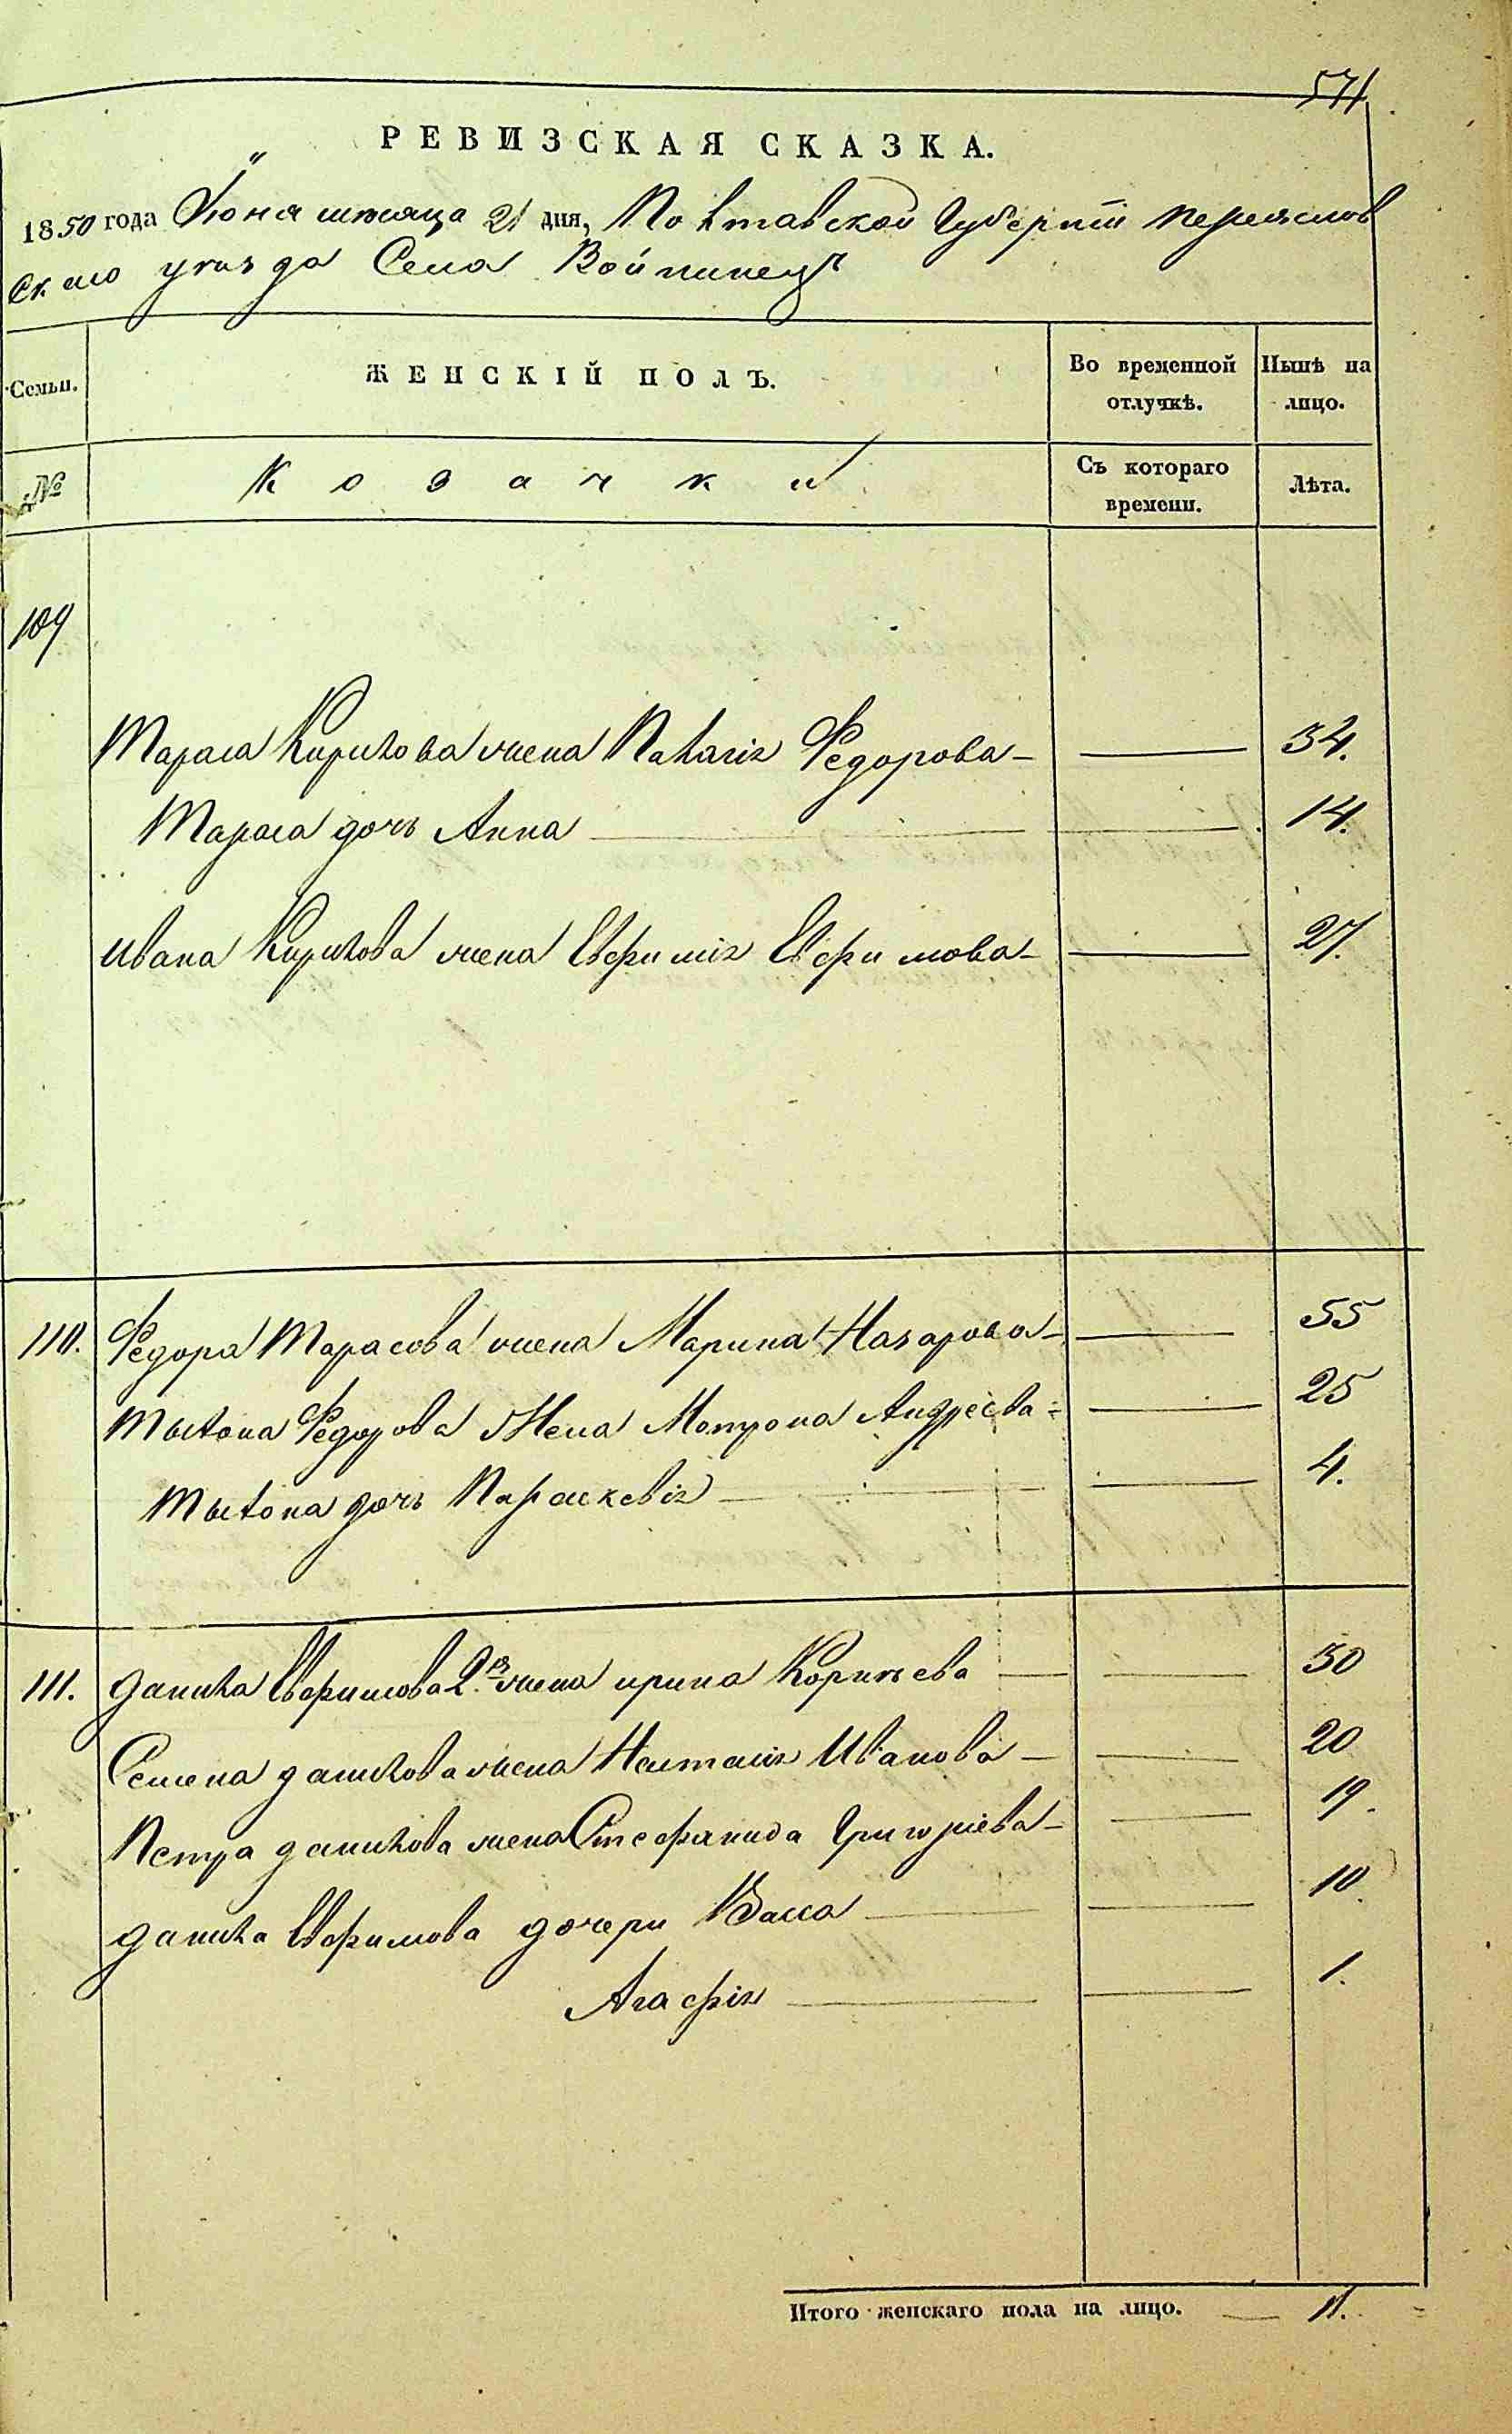 571
РЕВИЗСКАЯ СКАЗКА.
1850 года Іюня месяца 21 дня, Полтавской Губерніи Переяслов
скаго уезда Села Войтинецъ
Семьи. ЖЕНСКІЙ ПОЛЪ. Во временной отлучкѣ. Нынѣ на лицо.
№ Козачки Съ котораго времени. Лѣта.
109
Тараса Кирилова жена Палагія Федорова 34.
Тараса дочь Анна 14.
Ивана Кирилова жена Евфимія Евфимова 27.
110. Федора Тарасова жена Марина Назарова 55
Федорова Жена Мотрона Андреева 25
дочь Параскевія 4.
111. Данила Евфимова 2я жена Ирина Корнѣева 30
Семена Данилова жена Наталія Иванова 20
Петра Данилова жена Стефанида Григоріева 19.
Данила Евфимова дочери Васса 10.
Агафія 1.
Итого женскаго пола на лицо. 11.